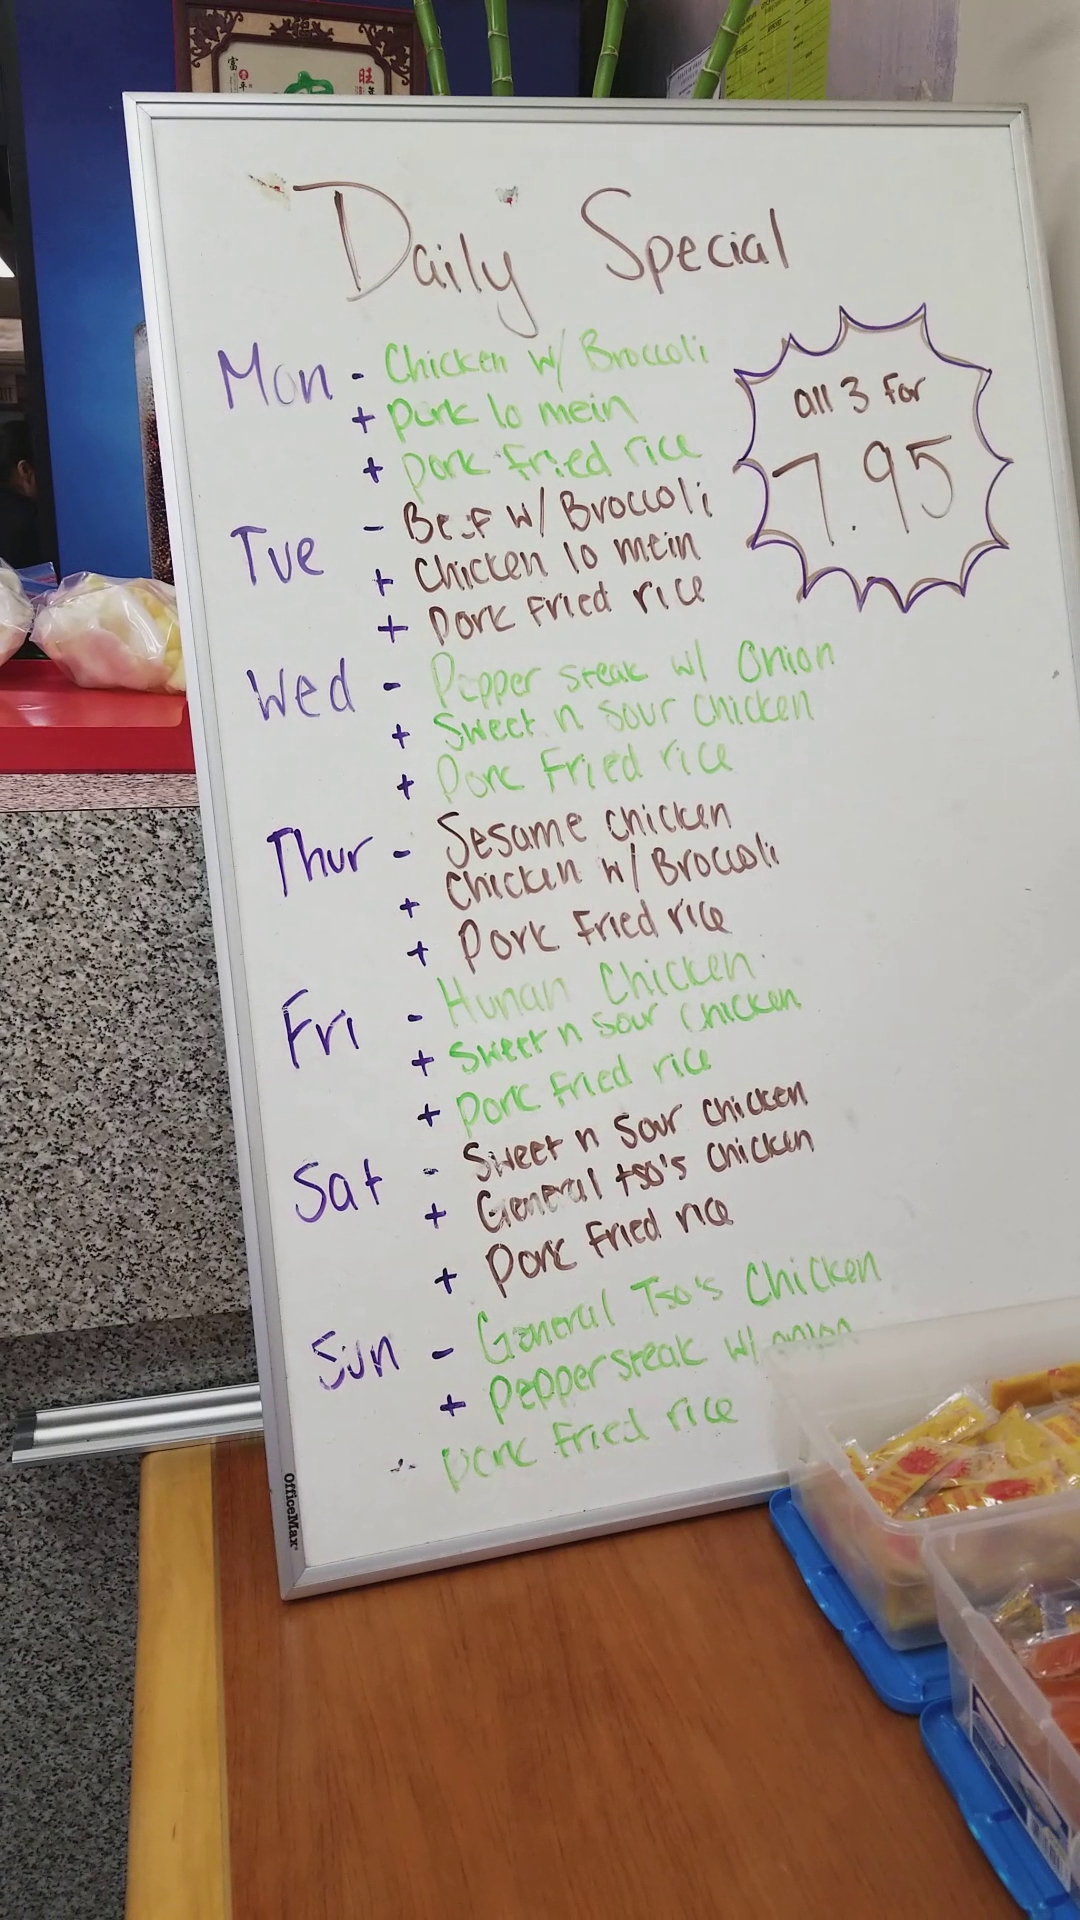 富
旺
Daily Special
Mon - Chicken w/ Broccoli
+ pork lo mein
+ pork fried rice
all 3 for
7.95
Tue - Beef w/ Broccoli
+ Chicken lo mein
+ Pork Fried rice
Wed - Pepper steak w/ Onion
+ Sweet n sour chicken
+ Pork Fried rice
Thur - Sesame chicken
+ Chicken w/ Broccoli
+ Pork Fried rice
Fri - Hunan Chicken
+ Sweet n sour chicken
+ Pork fried rice
Sat - Sweet n Sour chicken
+ General tso's chicken
+ Pork Fried rice
Sun - General Tso's Chicken
+ Pepper steak w/ onion
+ pork fried rice
OfficeMax